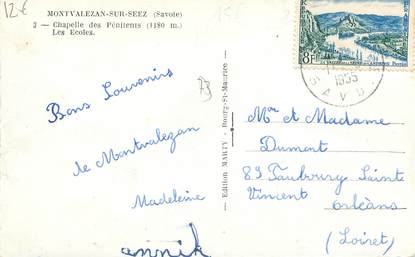 12€
MONTVALEZAN-SUR-SEEZ (Savoie)
2 — Chapelle des Pénitents (1180 m.)
Les Ecoles.
Bons Souvenirs
de Montvalezan
Madeleine
annik
73
Edition MARTY - Bourg-St-Maurice
8F
1955
SAVO
Mr et Madame
Dumont
89 Faubourg Sainte
Vincent Orléans
(Loiret)